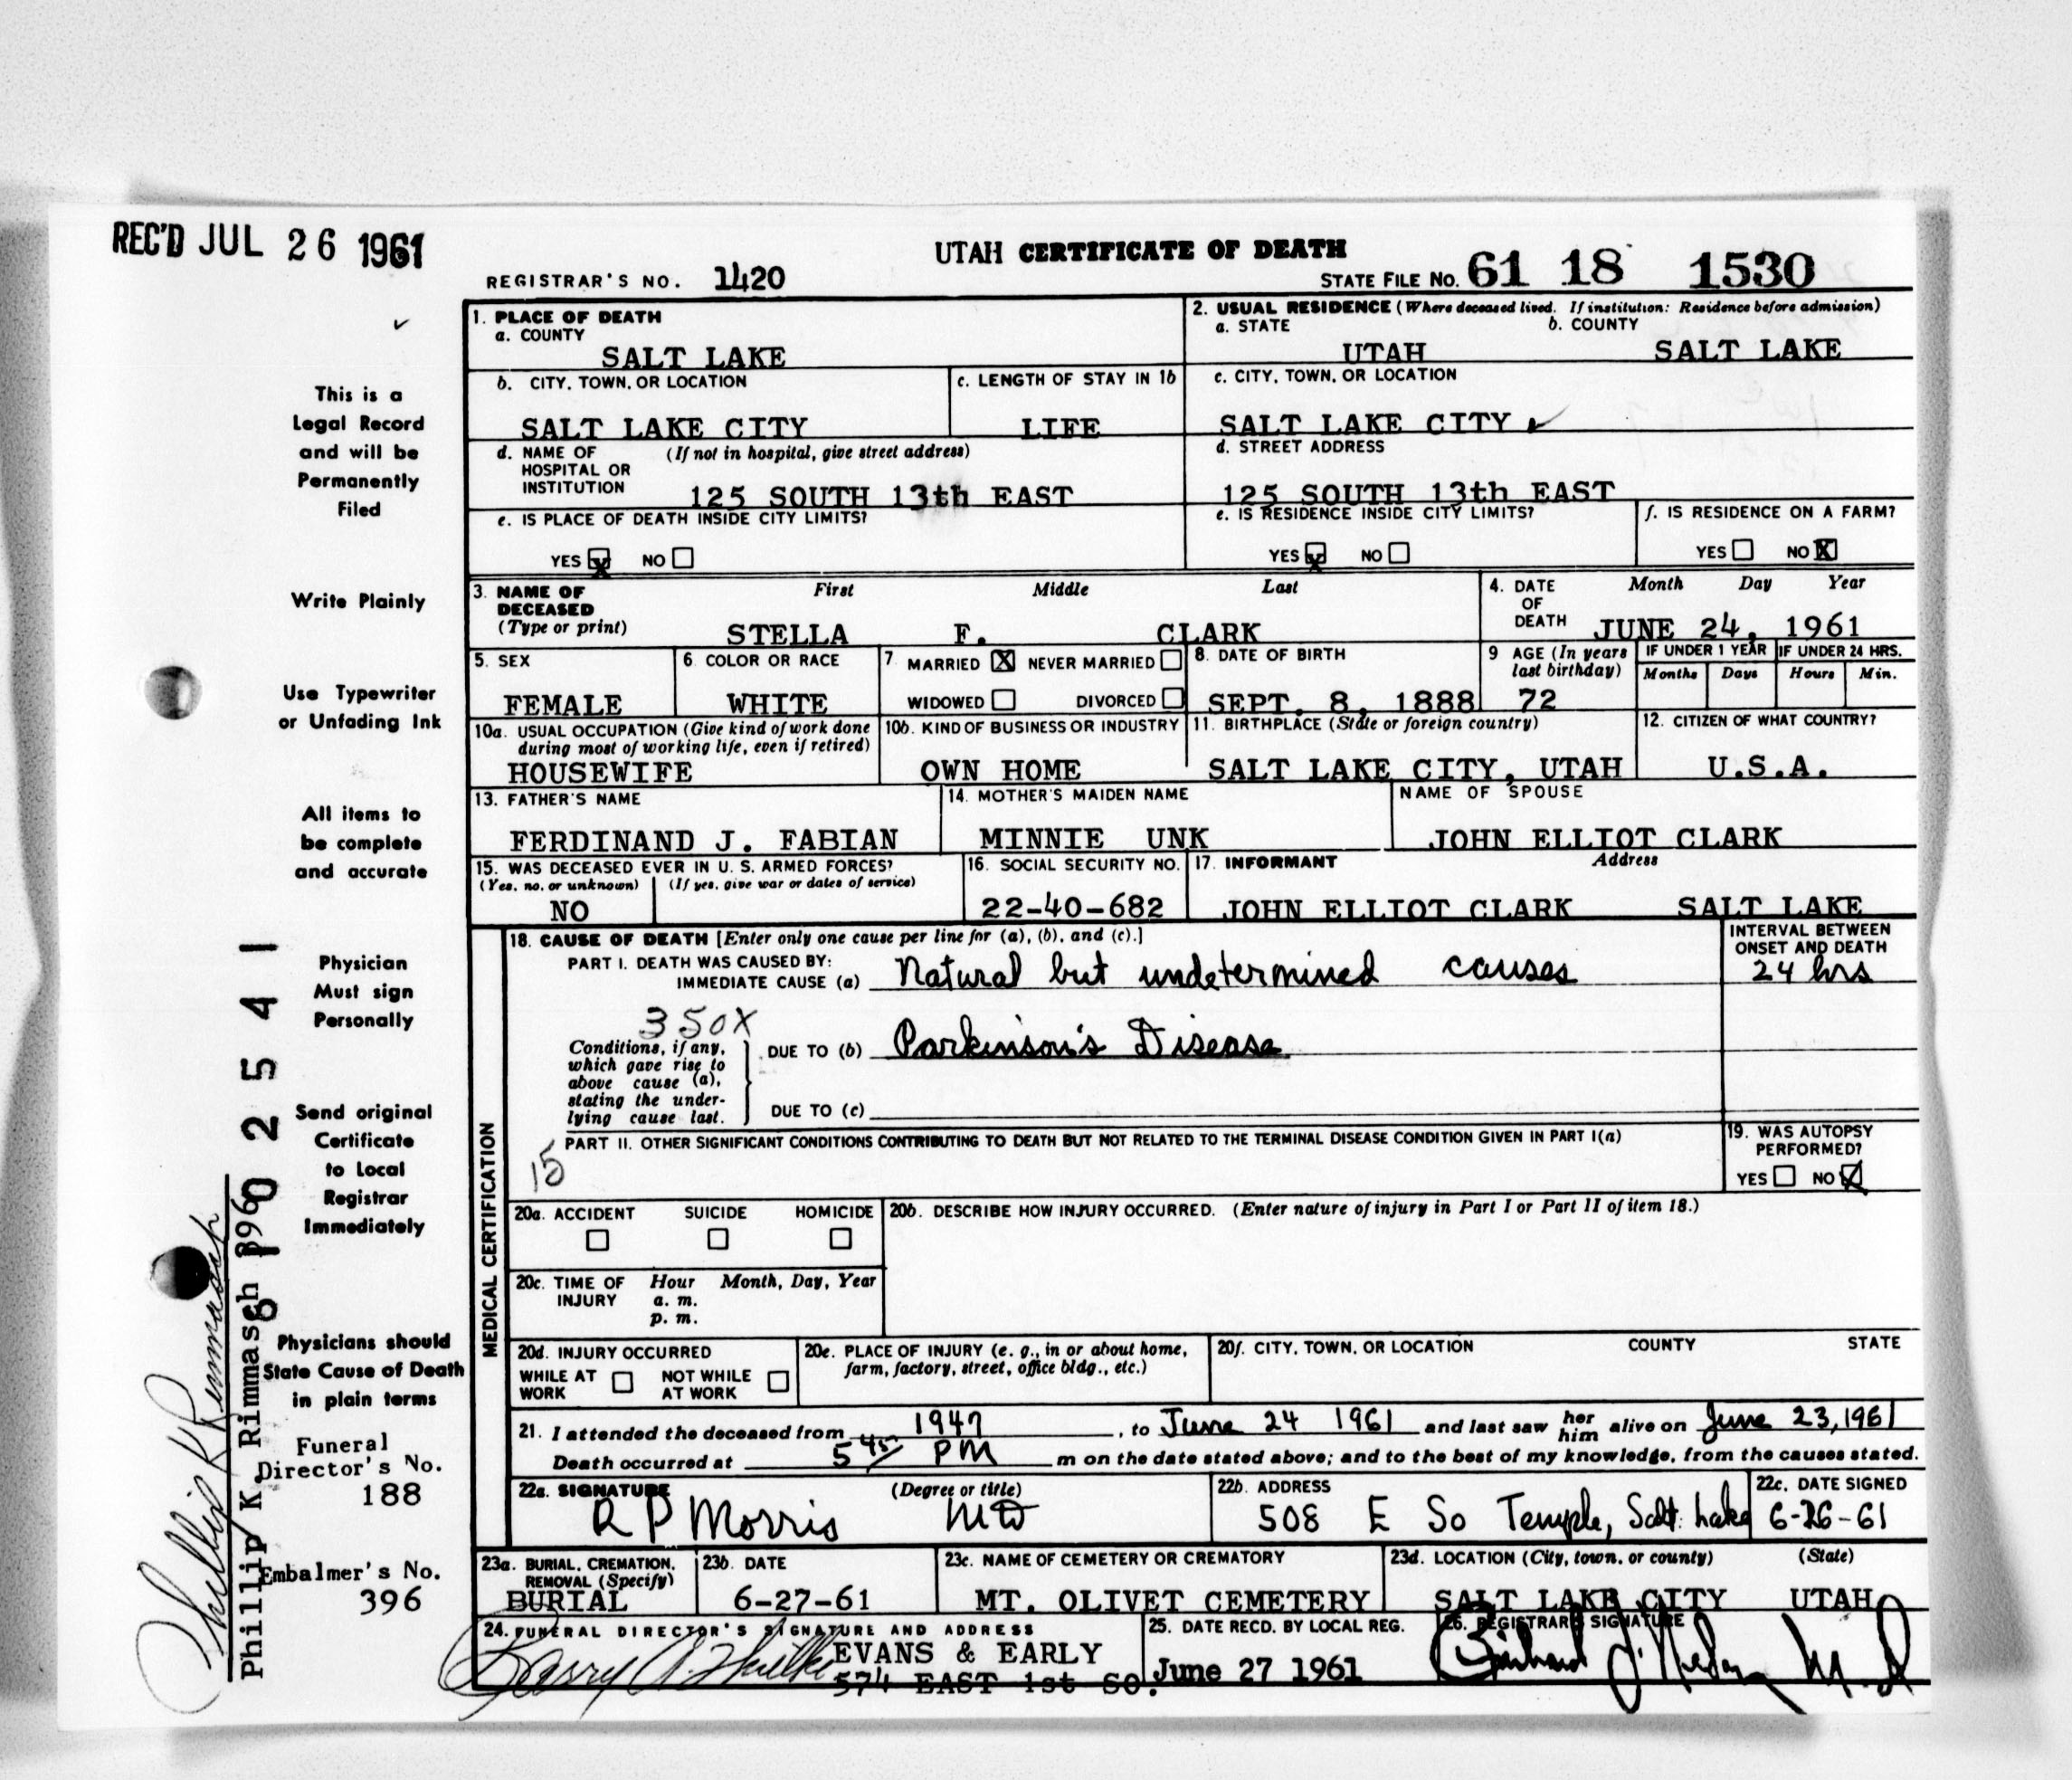 REC'D JUL 26 1961
UTAH CERTIFICATE OF DEATH
REGISTRAR'S NO. 1420
STATE FILE NO. 61 18 1530
1. PLACE OF DEATH
a. COUNTY
SALT LAKE
2. USUAL RESIDENCE (Where deceased lived. If institution: Residence before admission)
a. STATE b. COUNTY
UTAH SALT LAKE
b. CITY, TOWN, OR LOCATION
SALT LAKE CITY
c. LENGTH OF STAY IN 1b
LIFE
c. CITY, TOWN, OR LOCATION
SALT LAKE CITY
d. NAME OF (If not in hospital, give street address)
HOSPITAL OR
INSTITUTION 125 SOUTH 13th EAST
d. STREET ADDRESS
125 SOUTH 13th EAST
e. IS PLACE OF DEATH INSIDE CITY LIMITS?
YES X NO
e. IS RESIDENCE INSIDE CITY LIMITS?
YES X NO
f. IS RESIDENCE ON A FARM?
YES NO X
3. NAME OF First Middle Last
DECEASED
(Type or print) STELLA F. CLARK
4. DATE Month Day Year
OF
DEATH JUNE 24, 1961
5. SEX
FEMALE
6. COLOR OR RACE
WHITE
7 MARRIED X NEVER MARRIED
WIDOWED DIVORCED
8. DATE OF BIRTH
SEPT. 8, 1888
9 AGE (In years
last birthday)
72
IF UNDER 1 YEAR IF UNDER 24 HRS.
Months Days Hours Min.
10a. USUAL OCCUPATION (Give kind of work done
during most of working life, even if retired)
HOUSEWIFE
10b. KIND OF BUSINESS OR INDUSTRY
OWN HOME
11. BIRTHPLACE (State or foreign country)
SALT LAKE CITY, UTAH
12. CITIZEN OF WHAT COUNTRY?
U.S.A.
13. FATHER'S NAME
FERDINAND J. FABIAN
14. MOTHER'S MAIDEN NAME
MINNIE UNK
NAME OF SPOUSE
JOHN ELLIOT CLARK
15. WAS DECEASED EVER IN U. S. ARMED FORCES?
(Yes, no, or unknown) (If yes, give war or dates of service)
NO
16. SOCIAL SECURITY NO.
22-40-682
17. INFORMANT Address
JOHN ELLIOT CLARK SALT LAKE
MEDICAL CERTIFICATION
18. CAUSE OF DEATH [Enter only one cause per line for (a), (b), and (c).]
PART I. DEATH WAS CAUSED BY:
IMMEDIATE CAUSE (a) Natural but undetermined causes
INTERVAL BETWEEN
ONSET AND DEATH
24 hrs
350X
Conditions, if any,
which gave rise to
above cause (a),
stating the under-
lying cause last.
DUE TO (b) Parkinson's Disease
DUE TO (c)
15
PART II. OTHER SIGNIFICANT CONDITIONS CONTRIBUTING TO DEATH BUT NOT RELATED TO THE TERMINAL DISEASE CONDITION GIVEN IN PART I(a)
19. WAS AUTOPSY
PERFORMED?
YES NO X
20a. ACCIDENT SUICIDE HOMICIDE
20b. DESCRIBE HOW INJURY OCCURRED. (Enter nature of injury in Part I or Part II of item 18.)
20c. TIME OF Hour Month, Day, Year
INJURY a. m.
p. m.
20d. INJURY OCCURRED
WHILE AT NOT WHILE
WORK AT WORK
20e. PLACE OF INJURY (e. g., in or about home,
farm, factory, street, office bldg., etc.)
20f. CITY, TOWN, OR LOCATION COUNTY STATE
21. I attended the deceased from 1947, to June 24 1961 and last saw her him alive on June 23, 1961
Death occurred at 5 45 PM m on the date stated above; and to the best of my knowledge, from the causes stated.
22a. SIGNATURE (Degree or title)
R P Morris MD
22b. ADDRESS
508 E So Temple, Salt Lake
22c. DATE SIGNED
6-26-61
23a. BURIAL, CREMATION,
REMOVAL (Specify)
BURIAL
23b. DATE
6-27-61
23c. NAME OF CEMETERY OR CREMATORY
MT. OLIVET CEMETERY
23d. LOCATION (City, town, or county) (State)
SALT LAKE CITY UTAH
24. FUNERAL DIRECTOR'S SIGNATURE AND ADDRESS
EVANS & EARLY
574 EAST 1st SO.
25. DATE RECD. BY LOCAL REG.
June 27 1961
26. REGISTRAR'S SIGNATURE
This is a
Legal Record
and will be
Permanently
Filed
Write Plainly
Use Typewriter
or Unfading Ink
All items to
be complete
and accurate
Physician
Must sign
Personally
Send original
Certificate
to Local
Registrar
Immediately
Physicians should
State Cause of Death
in plain terms
Funeral
Director's No.
188
Embalmer's No.
396
Phillip K Rimmasch
Phillip K. Rimmasch 396
6 1 0 2 5 4 1